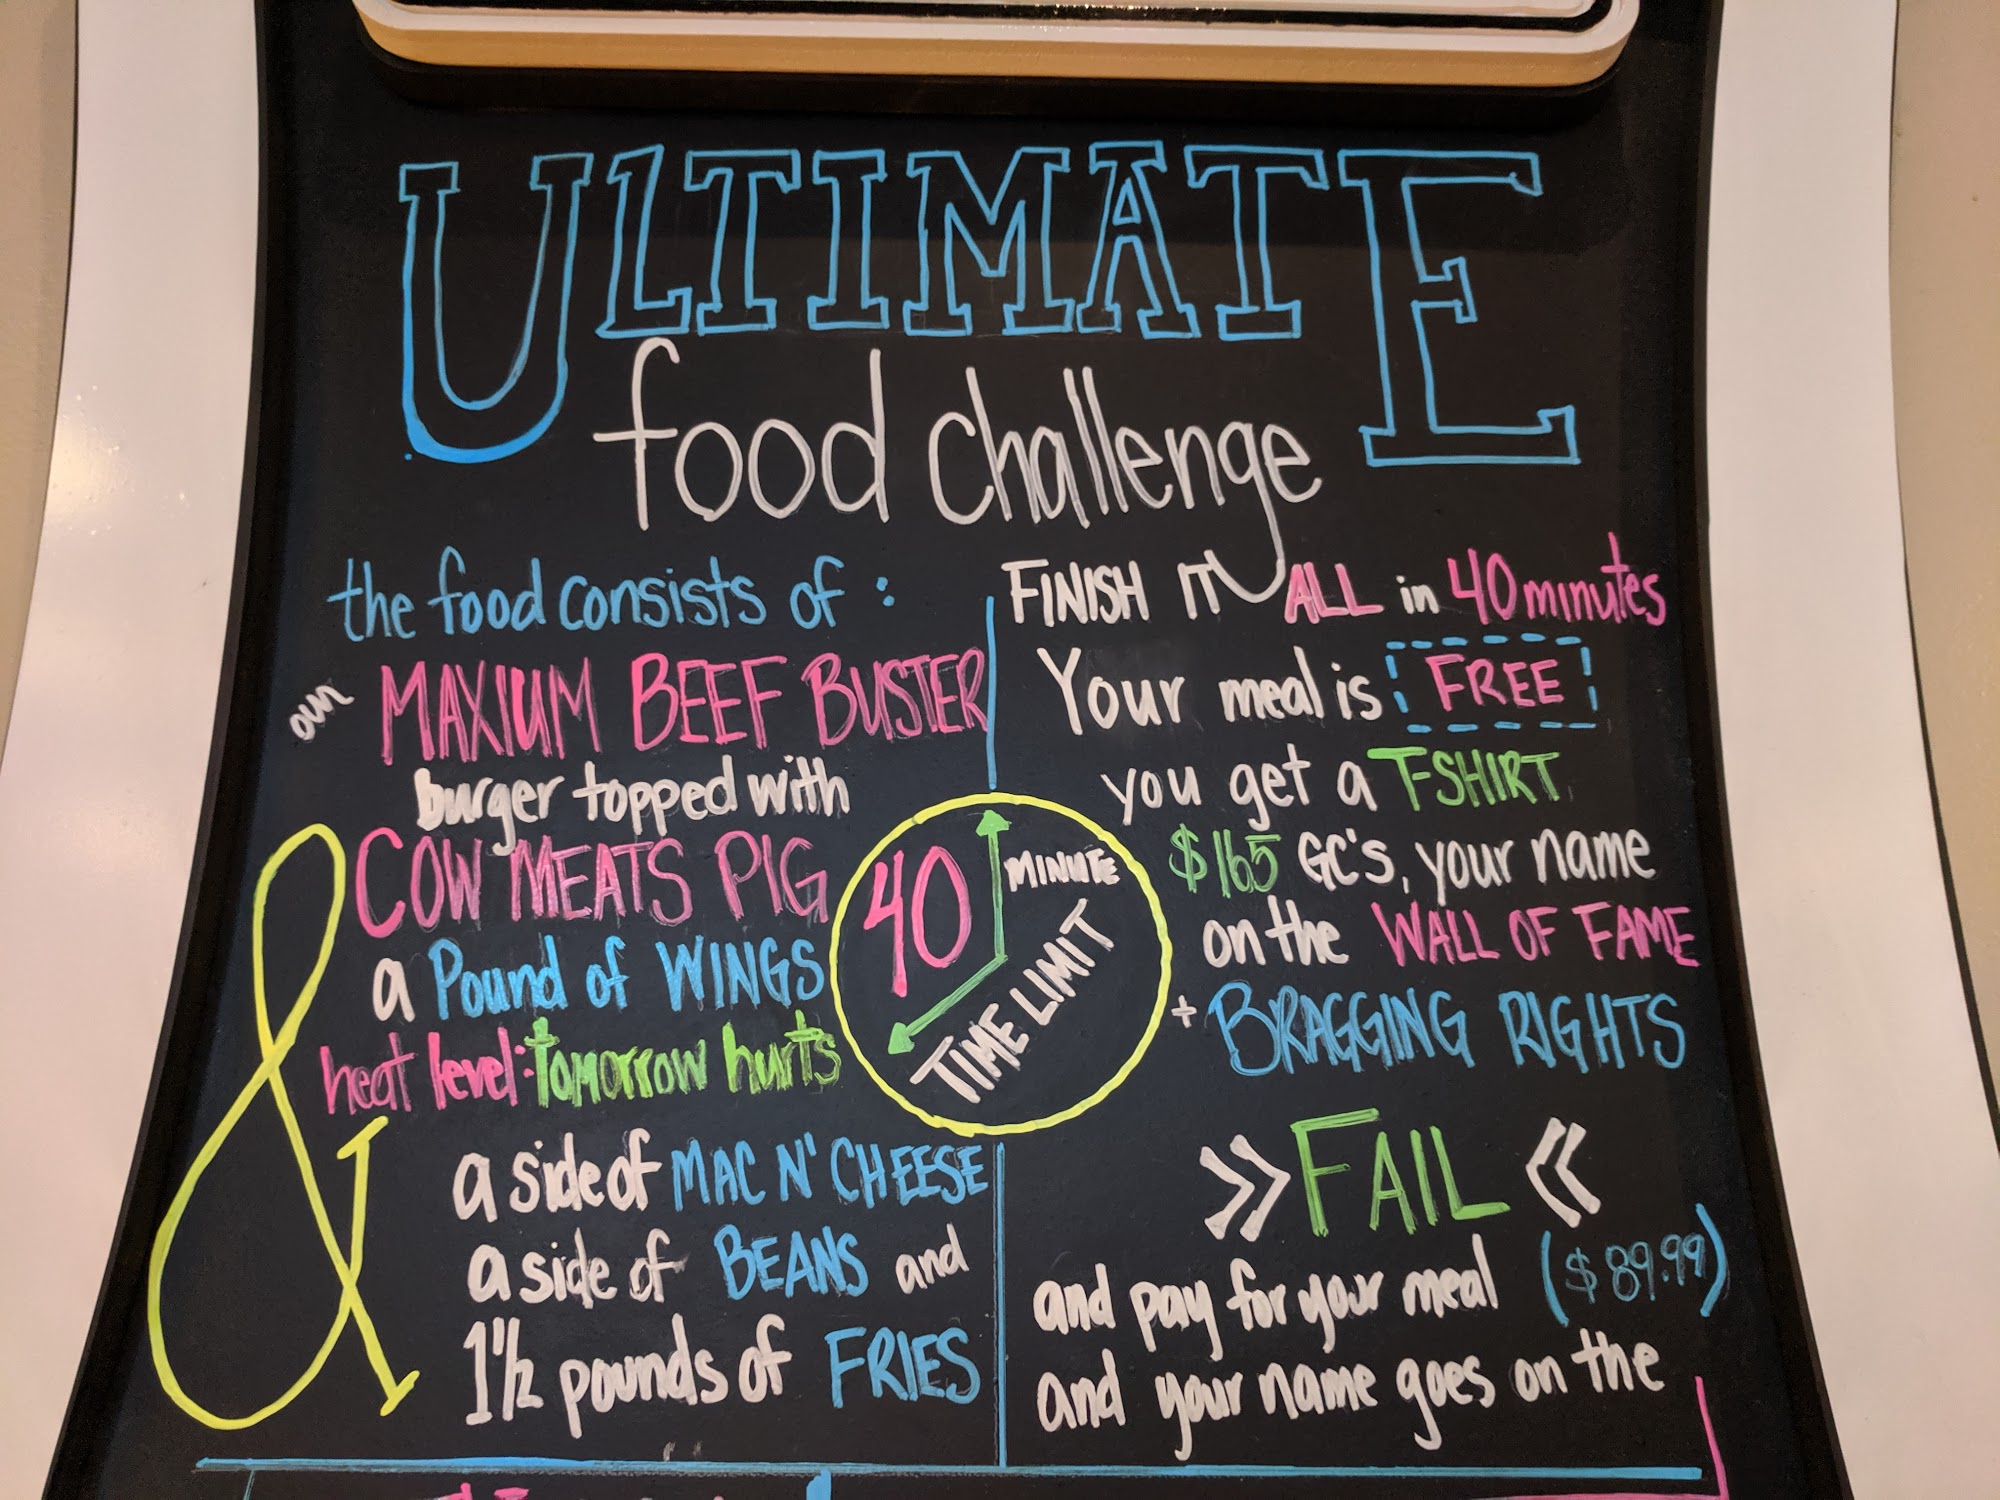 ULTIMATE
food challenge
the food consists of :
our MAXIUM BEEF BUSTER
burger topped with
COW MEATS PIG
&
a Pound of WINGS
heat level: tomorrow hurts
a side of MAC N' CHEESE
a side of BEANS and
1 1/2 pounds of FRIES
40 MINUTE
TIME LIMIT
FINISH IT ALL in 40 minutes
Your meal is FREE
you get a T-SHIRT
$165 GC's, your name
on the WALL OF FAME
+ BRAGGING RIGHTS
>> FAIL <<
and pay for your meal ($89.99)
and your name goes on the